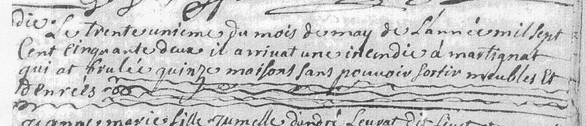 die
Le trente unieme du mois de may de L'année mil sept
Cent cinquante deux il arrivat une incendie á martignat
qui at brulée quinze maisons sans pouvoir sortir meubles Et
Denrées
jeanne marie fille jumelle d'andré